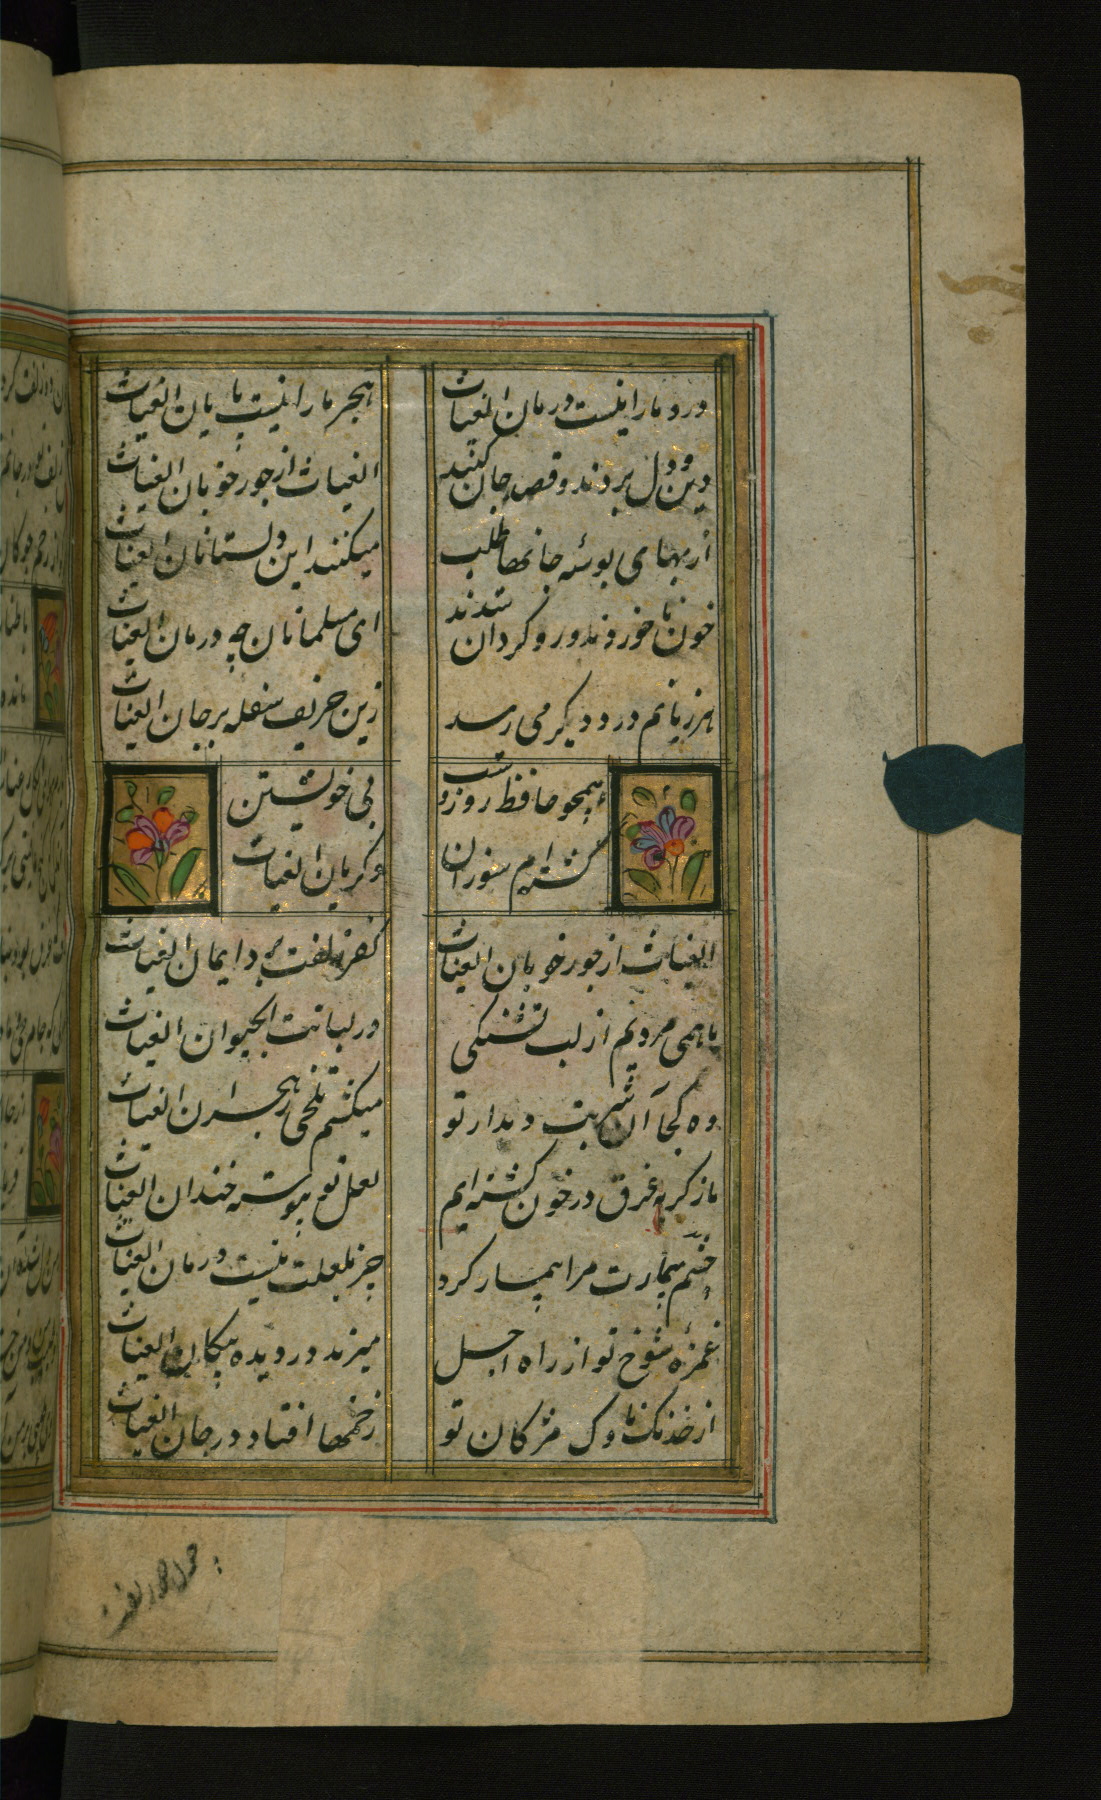 درد ما را نیست درمان الغیاث
هجر ما را نیست پایان الغیاث
دین و دل بردند و قصد جان کنند
الغیاث از جور خوبان الغیاث
از بهای بوسهٔ جانها طلب
میکنند این دلستانان الغیاث
خون ما خوردند و رو گردان شدند
ای مسلمانان چه درمان الغیاث
هر زمانم درد دیگر می رسد
زین حریف سفله بر جان الغیاث
همچو حافظ روز و شب
بی خویشتن
گشته‌ام سوزان
و گریان الغیاث
الغیاث از جور خوبان الغیاث
کفر زلفت برد ایمان الغیاث
ما همی مردیم از لب تشنگی
در لبانت آب حیوان الغیاث
وه کجا آن شربت دیدار تو
میکشم تلخی هجران الغیاث
ما ز گریه غرق در خون گشته‌ایم
لعل تو پیوسته خندان الغیاث
چشم بیمارت مرا بیمار کرد
جز بلعلت نیست درمان الغیاث
غمزهٔ شوخ تو از راه اجل
میزند در دیده پیکان الغیاث
از خدنگ ناوک مژگان تو
زخمها افتاد در جان الغیاث